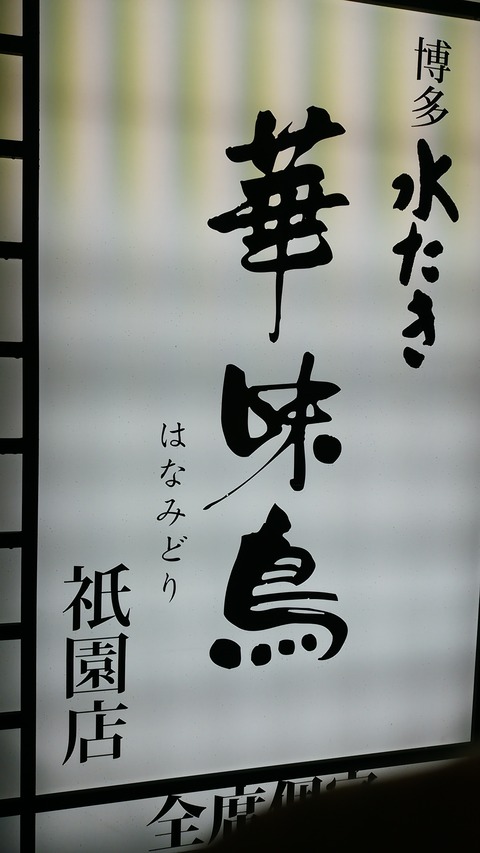 博多
水たき
華味鳥
はなみどり
祇園店
全席個室